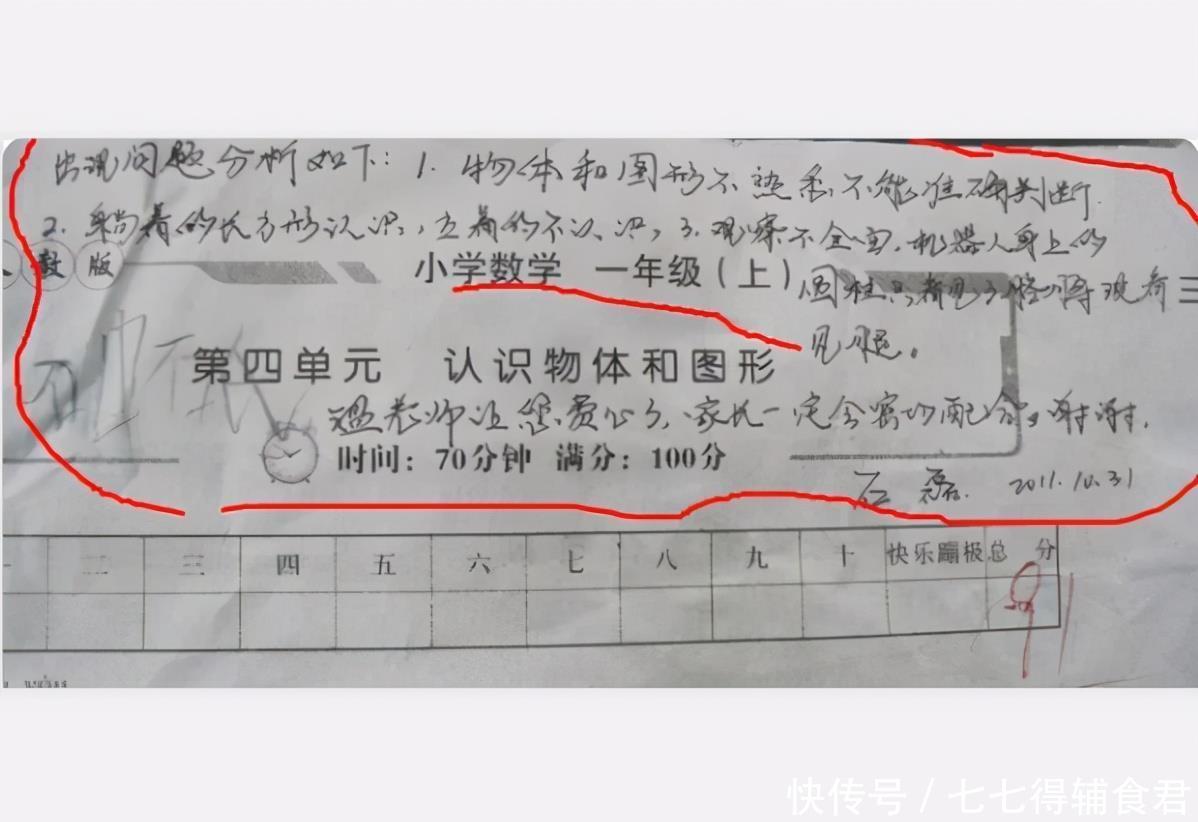 出现问题分析如下：1. 物体和图形不熟悉不能准确判断.
2. 躺着的长方形认识，立着的不认识，3. 观察不全面. 机器人身上的
教版
小学数学 一年级（上）
圆柱只看见了
见腿。
第四单元 认识物体和图形
老师让您费心了，家长一定会密切配合，谢谢.
时间：70分钟 满分：100分
石磊. 2011.10.31
二 三 四 五 六 七 八 九 十 快乐蹦极 总分
91
快传号 / 七七得辅食君